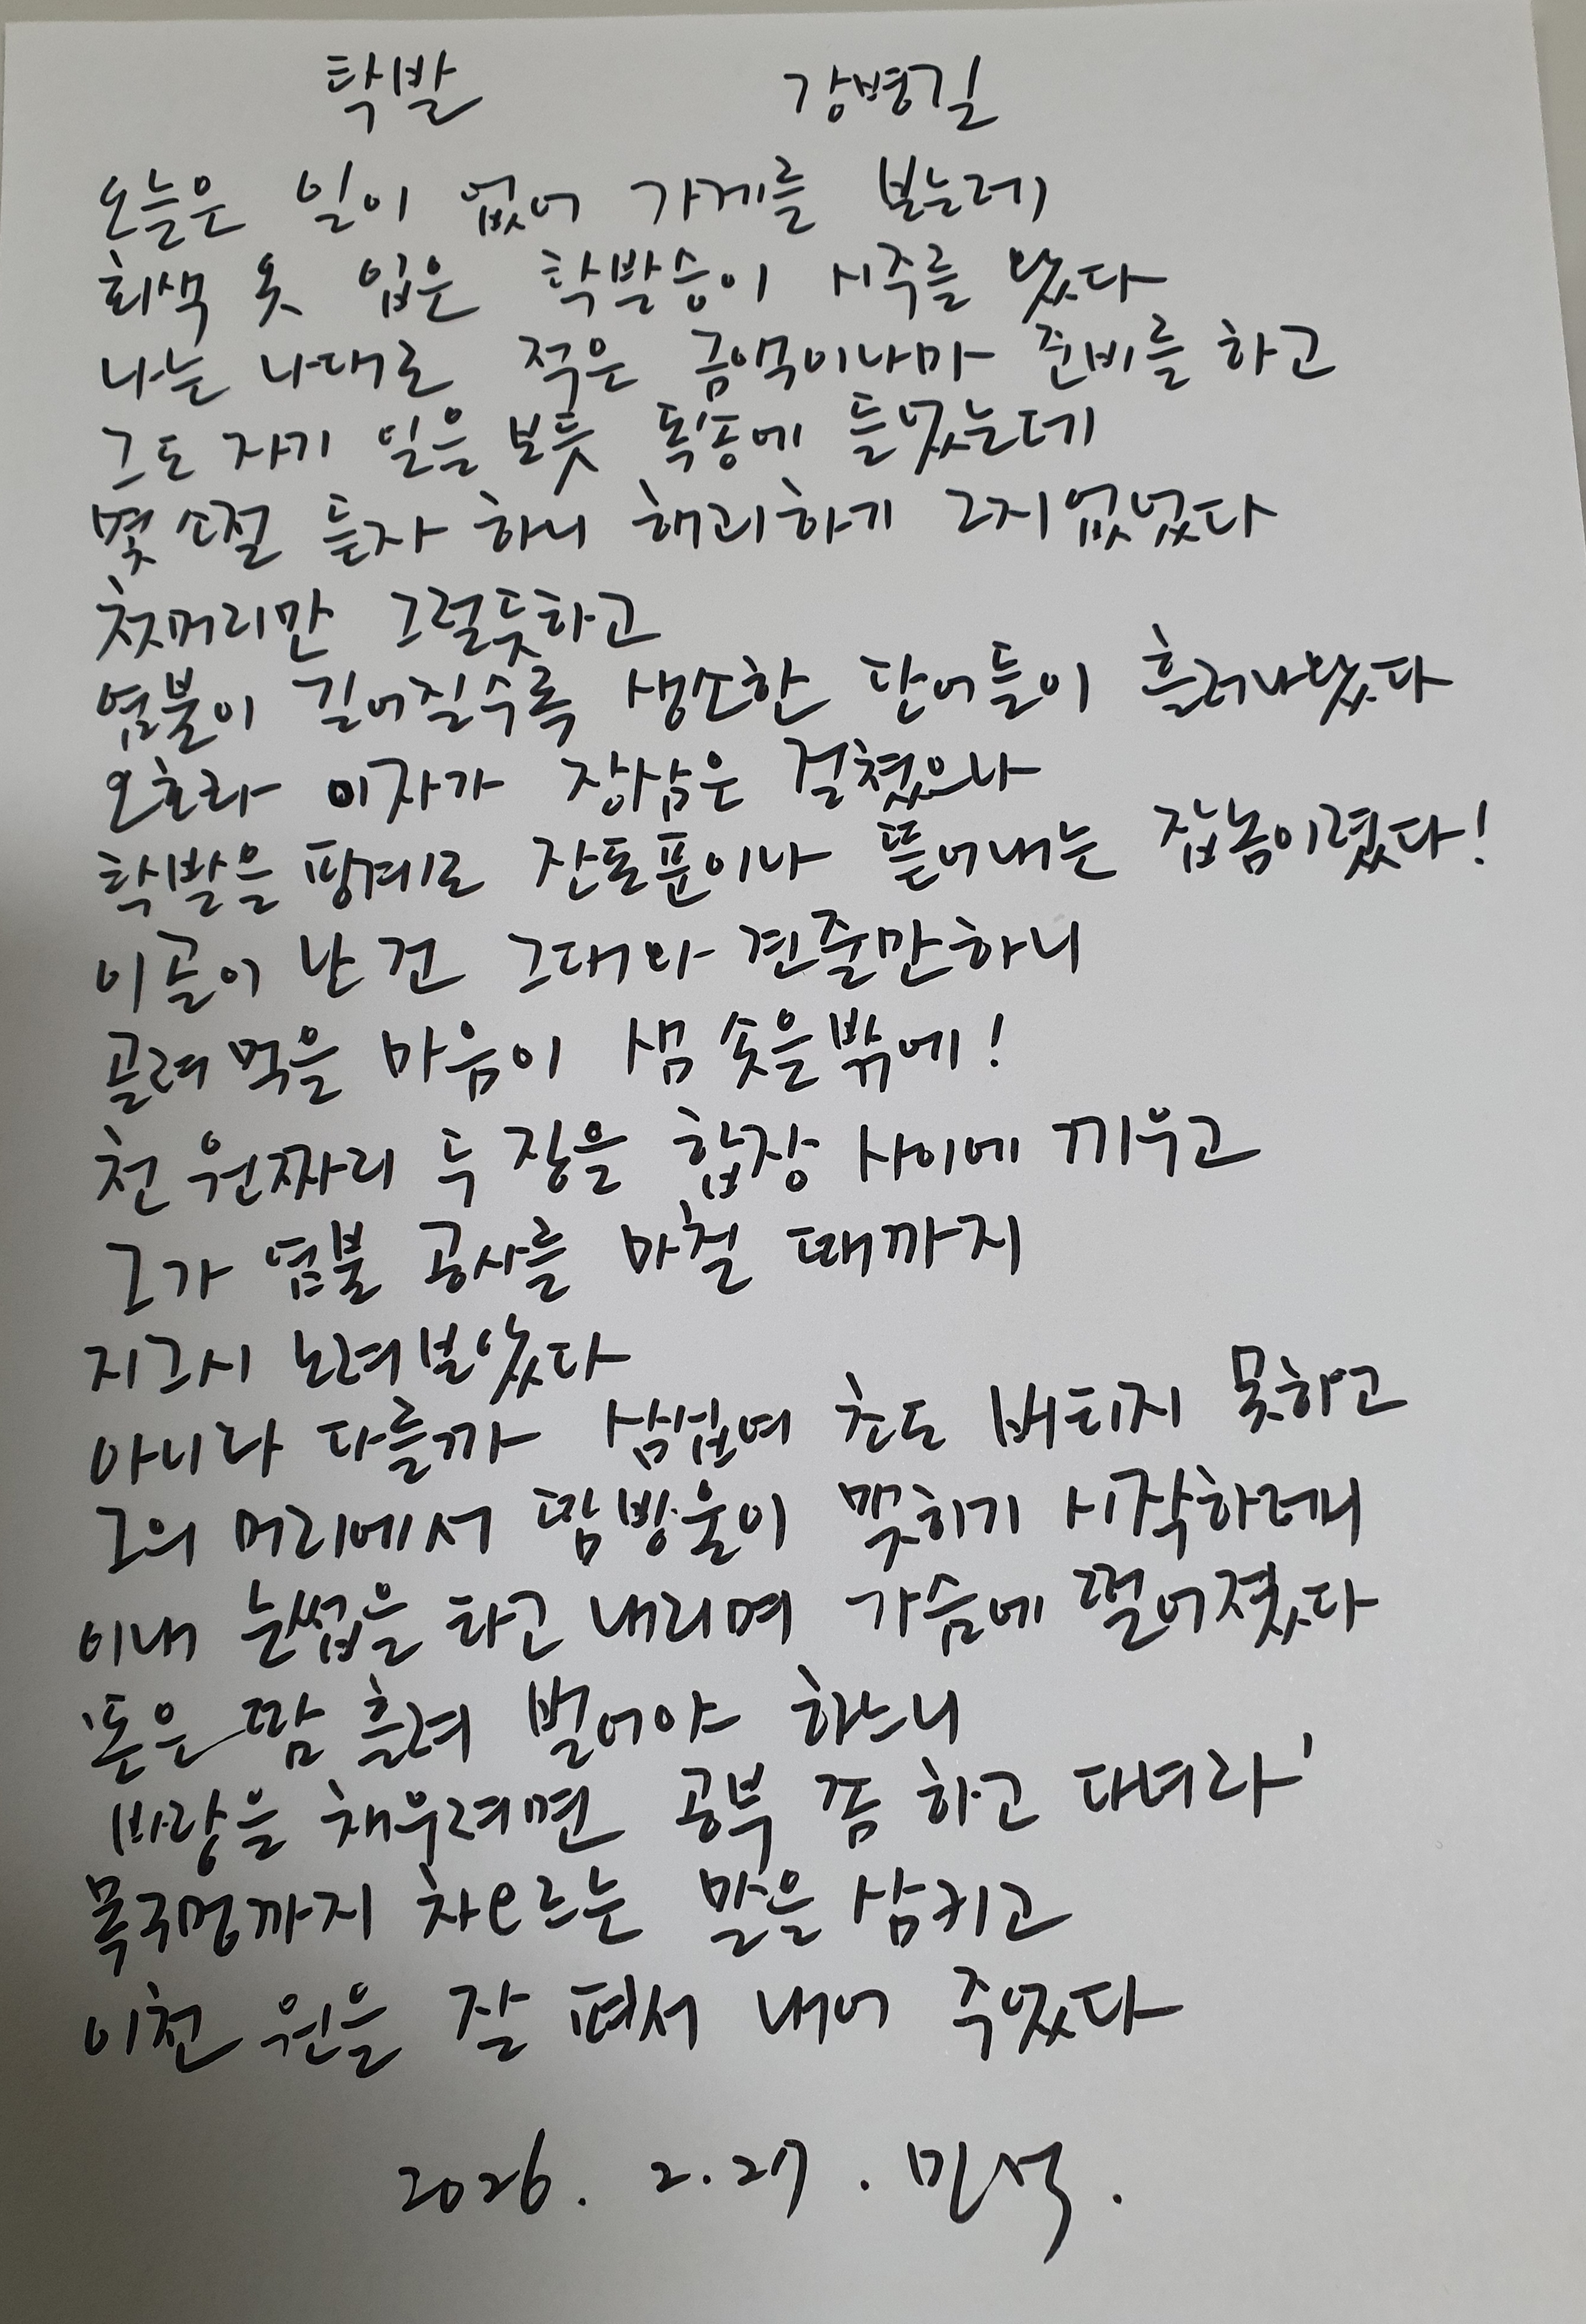 탁발 강병길
오늘은 일이 없어 가게를 보는데
회색 옷 입은 탁발승이 시주를 왔다
나는 나대로 적은 금액이나마 준비를 하고
그도 자기 일을 보듯 독송에 들었는데
몇 소절 듣자 하니 해괴하기 그지없었다
첫머리만 그럴듯하고
염불이 길어질수록 생소한 단어들이 흘러나왔다
오호라 이자가 장삼은 걸쳤으나
탁발을 핑계로 잔돈푼이나 뜯어내는 잡놈이렸다!
이골이 난 건 그대와 견줄만하니
골려 먹을 마음이 샘 솟을밖에!
천 원짜리 두 장을 합장 사이에 끼우고
그가 염불 공사를 마칠 때까지
지그시 노려보았다
아니나 다를까 삼십여 초도 버티지 못하고
그의 머리에서 땀방울이 맺히기 시작하더니
이내 눈썹을 타고 내리며 가슴에 떨어졌다
'돈은 땀 흘려 벌어야 하느니
바랑을 채우려면 공부 쫌 하고 다녀라'
목구멍까지 차오르는 말을 삼키고
이천 원을 잘 펴서 내어 주었다
2026. 2. 27. 민석.